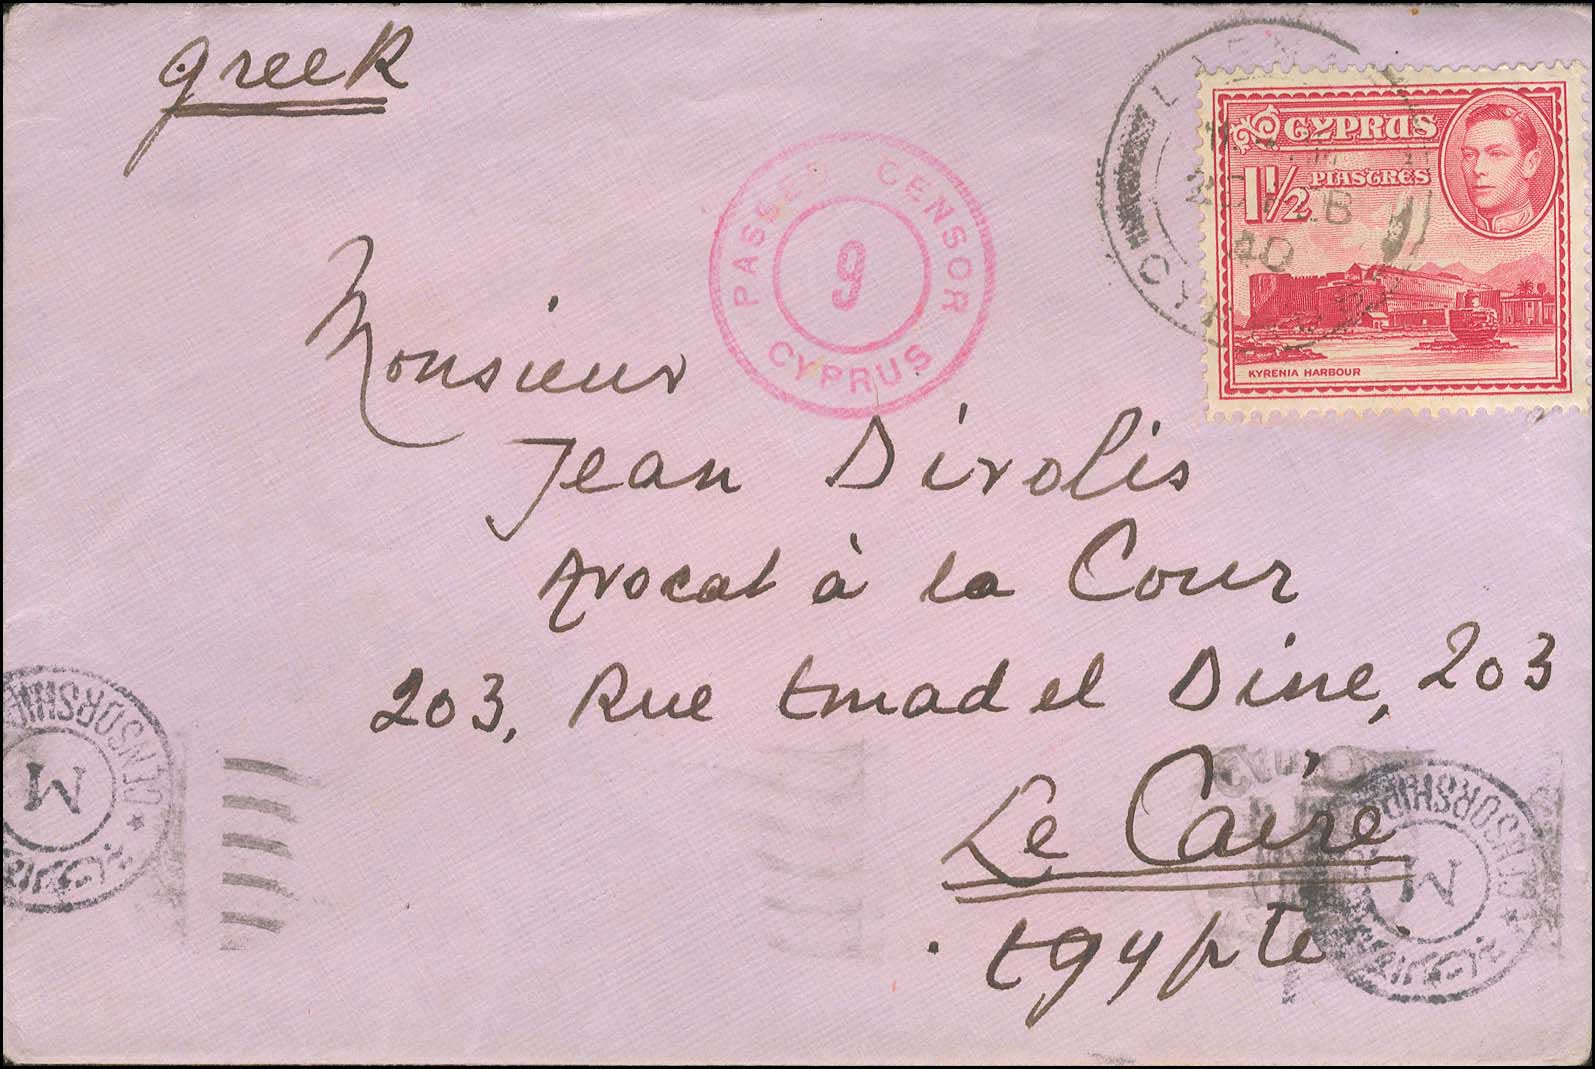 greek
CYPRUS
1½ PIASTRES
KYRENIA HARBOUR
20 FEB
40
PASSED CENSOR
9
CYPRUS
Monsieur
Jean Divolis
Avocat à la Cour
203, Rue Emad el Dine, 203
Le Caire
Egypte
CENSORSHIP
M
CENSORSHIP
M